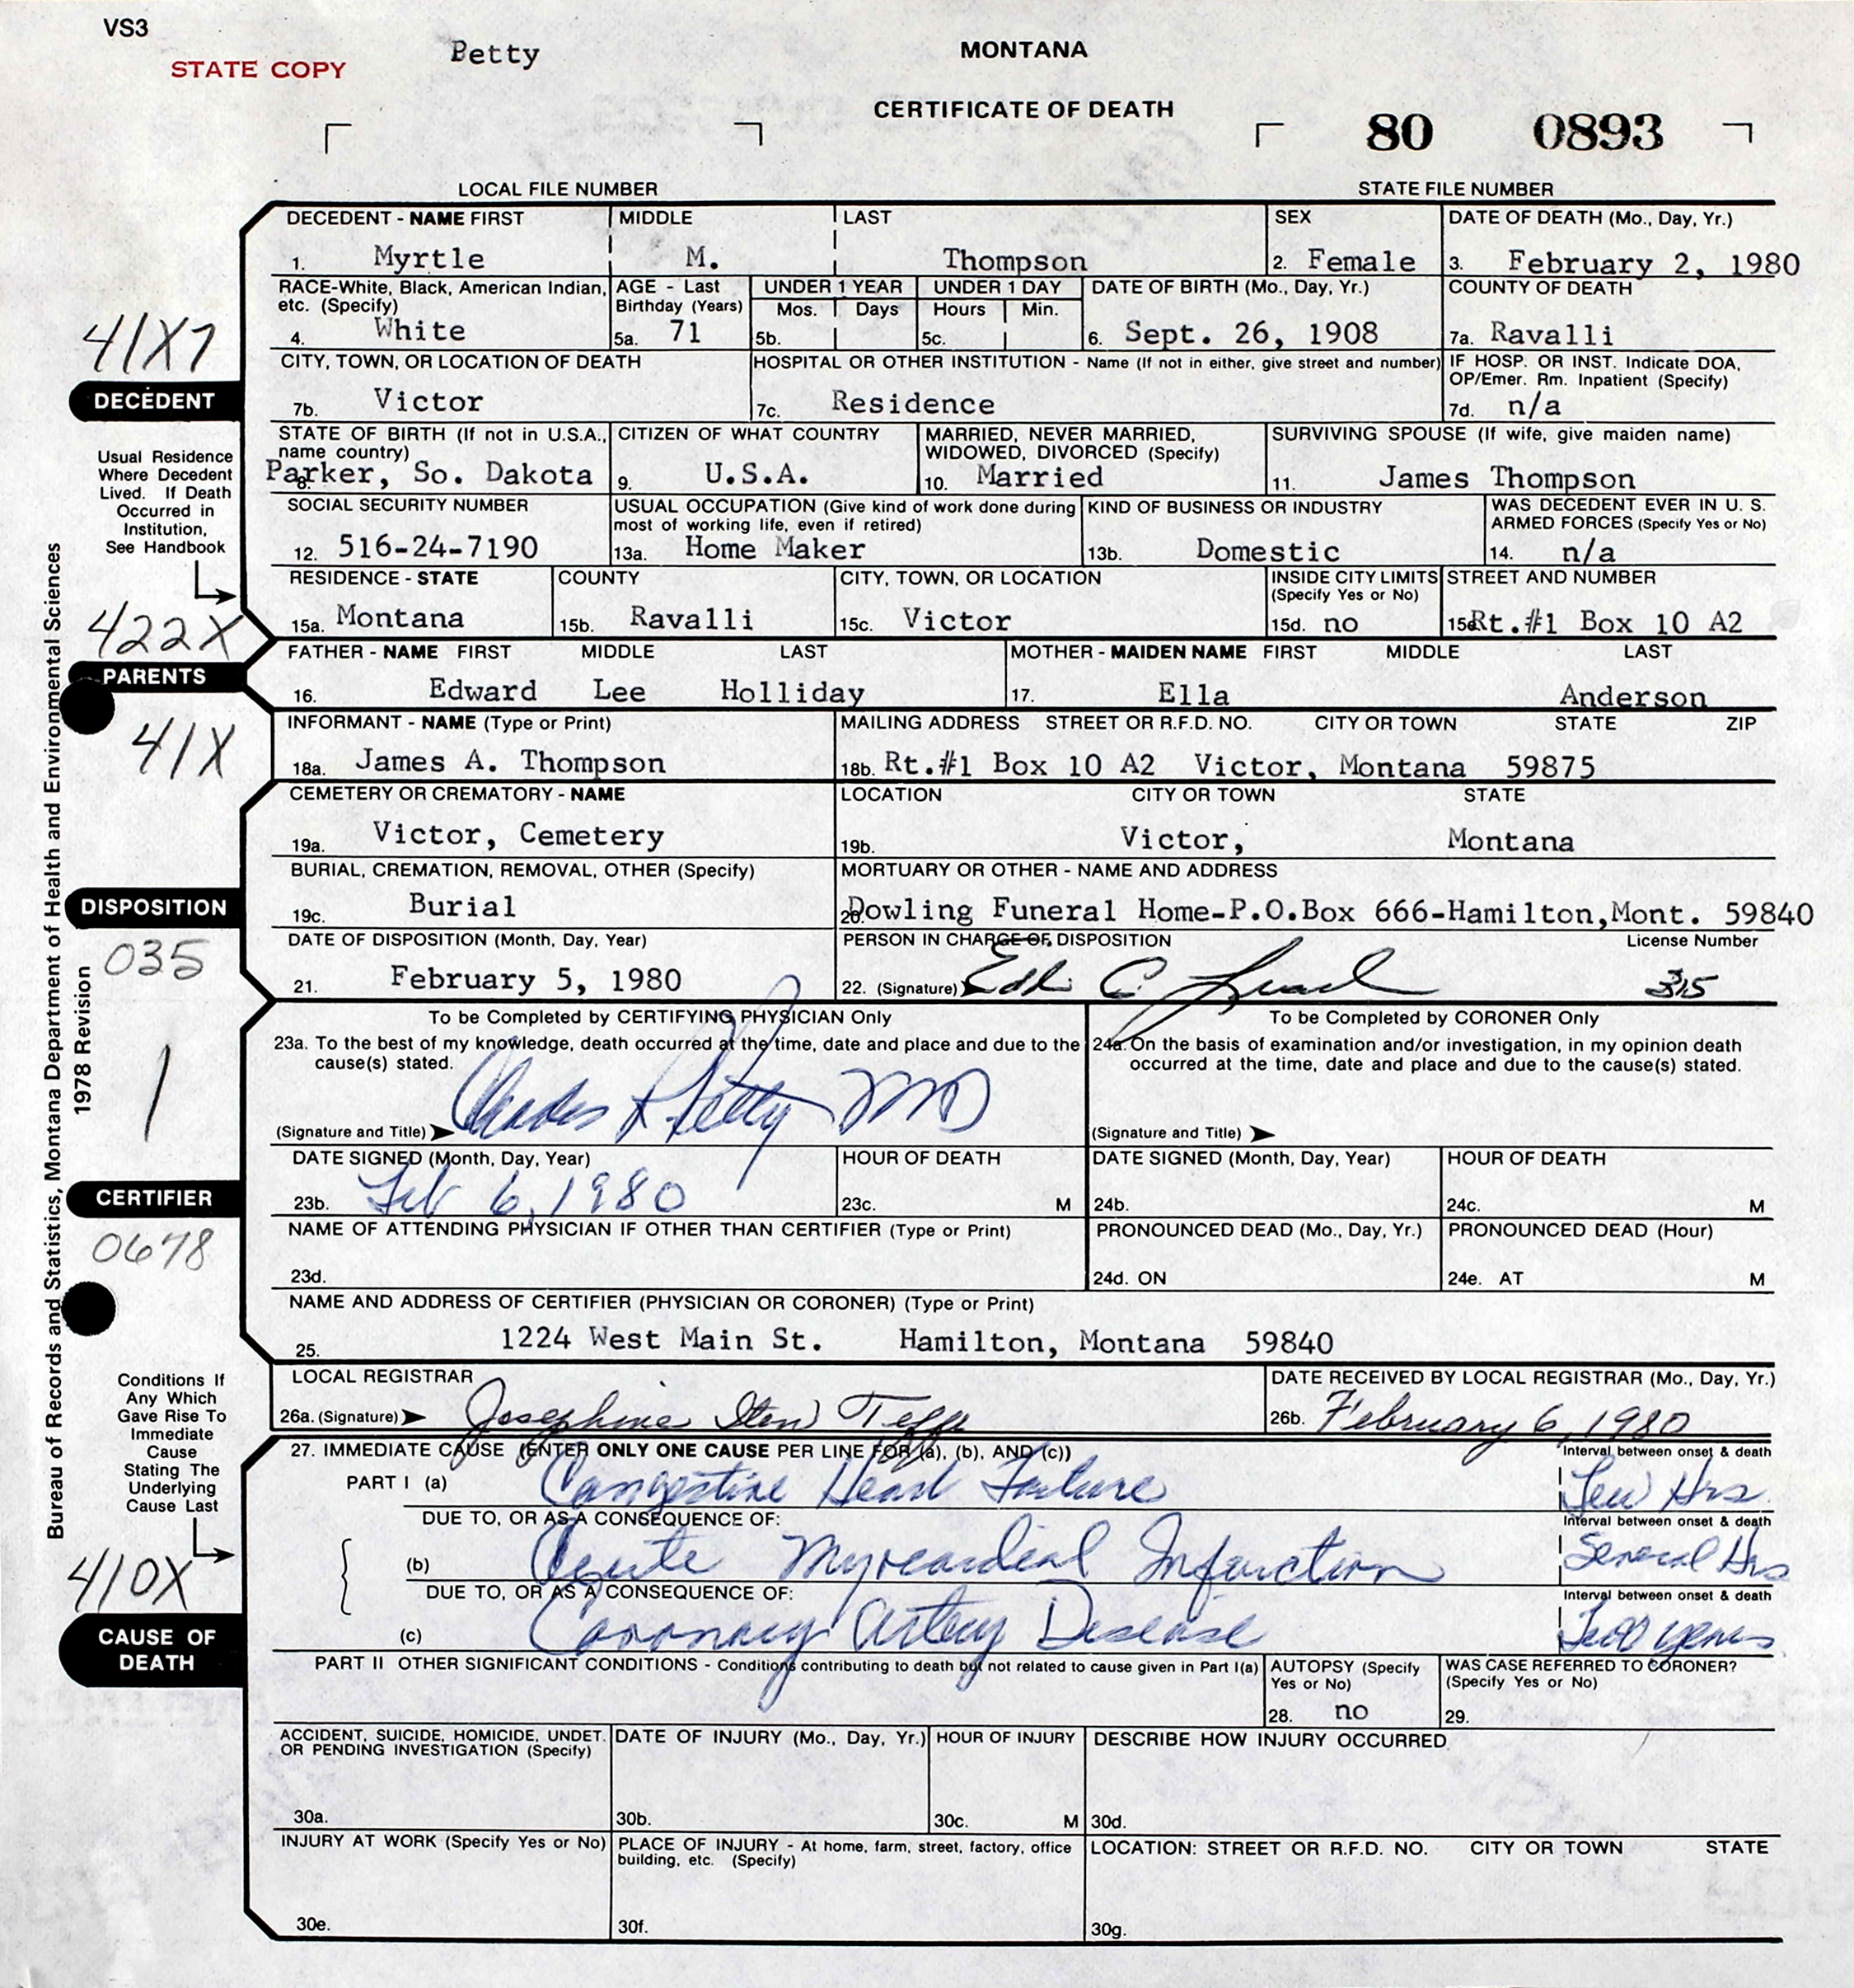 VS3
STATE COPY
Petty
MONTANA
CERTIFICATE OF DEATH
80 0893
LOCAL FILE NUMBER STATE FILE NUMBER
DECEDENT - NAME FIRST MIDDLE LAST SEX DATE OF DEATH (Mo., Day, Yr.)
1. Myrtle M. Thompson 2. Female 3. February 2, 1980
RACE-White, Black, American Indian, etc. (Specify) AGE - Last Birthday (Years) UNDER 1 YEAR UNDER 1 DAY DATE OF BIRTH (Mo., Day, Yr.) COUNTY OF DEATH
Mos. Days Hours Min.
4. White 5a. 71 5b. 5c. 6. Sept. 26, 1908 7a. Ravalli
41X7
DECEDENT
CITY, TOWN, OR LOCATION OF DEATH HOSPITAL OR OTHER INSTITUTION - Name (If not in either, give street and number) IF HOSP. OR INST. Indicate DOA, OP/Emer. Rm. Inpatient (Specify)
7b. Victor 7c. Residence 7d. n/a
Usual Residence
Where Decedent
Lived. If Death
Occurred in
Institution,
See Handbook
STATE OF BIRTH (If not in U.S.A., name country) CITIZEN OF WHAT COUNTRY MARRIED, NEVER MARRIED, WIDOWED, DIVORCED (Specify) SURVIVING SPOUSE (If wife, give maiden name)
8. Parker, So. Dakota 9. U.S.A. 10. Married 11. James Thompson
SOCIAL SECURITY NUMBER USUAL OCCUPATION (Give kind of work done during most of working life, even if retired) KIND OF BUSINESS OR INDUSTRY WAS DECEDENT EVER IN U. S. ARMED FORCES (Specify Yes or No)
12. 516-24-7190 13a. Home Maker 13b. Domestic 14. n/a
RESIDENCE - STATE COUNTY CITY, TOWN, OR LOCATION INSIDE CITY LIMITS (Specify Yes or No) STREET AND NUMBER
15a. Montana 15b. Ravalli 15c. Victor 15d. no 15e. Rt.#1 Box 10 A2
422X
PARENTS
FATHER - NAME FIRST MIDDLE LAST MOTHER - MAIDEN NAME FIRST MIDDLE LAST
16. Edward Lee Holliday 17. Ella Anderson
41X
INFORMANT - NAME (Type or Print) MAILING ADDRESS STREET OR R.F.D. NO. CITY OR TOWN STATE ZIP
18a. James A. Thompson 18b. Rt.#1 Box 10 A2 Victor, Montana 59875
CEMETERY OR CREMATORY - NAME LOCATION CITY OR TOWN STATE
19a. Victor, Cemetery 19b. Victor, Montana
DISPOSITION
BURIAL, CREMATION, REMOVAL, OTHER (Specify) MORTUARY OR OTHER - NAME AND ADDRESS
19c. Burial 20. Dowling Funeral Home-P.O.Box 666-Hamilton,Mont. 59840
035
DATE OF DISPOSITION (Month, Day, Year) PERSON IN CHARGE OF DISPOSITION License Number
21. February 5, 1980 22. (Signature) 315
Bureau of Records and Statistics, Montana Department of Health and Environmental Sciences
1978 Revision
1
To be Completed by CERTIFYING PHYSICIAN Only To be Completed by CORONER Only
23a. To the best of my knowledge, death occurred at the time, date and place and due to the cause(s) stated. 24a. On the basis of examination and/or investigation, in my opinion death occurred at the time, date and place and due to the cause(s) stated.
(Signature and Title) Charles Petty MD (Signature and Title)
DATE SIGNED (Month, Day, Year) HOUR OF DEATH DATE SIGNED (Month, Day, Year) HOUR OF DEATH
23b. Feb 6, 1980 23c. M 24b. 24c. M
CERTIFIER
0678
NAME OF ATTENDING PHYSICIAN IF OTHER THAN CERTIFIER (Type or Print) PRONOUNCED DEAD (Mo., Day, Yr.) PRONOUNCED DEAD (Hour)
23d. 24d. ON 24e. AT M
NAME AND ADDRESS OF CERTIFIER (PHYSICIAN OR CORONER) (Type or Print)
25. 1224 West Main St. Hamilton, Montana 59840
LOCAL REGISTRAR DATE RECEIVED BY LOCAL REGISTRAR (Mo., Day, Yr.)
26a. (Signature) Josephine 26b. February 6, 1980
Conditions If
Any Which
Gave Rise To
Immediate
Cause
Stating The
Underlying
Cause Last
410X
CAUSE OF
DEATH
27. IMMEDIATE CAUSE (ENTER ONLY ONE CAUSE PER LINE FOR (a), (b), AND (c)) Interval between onset & death
PART I (a) Congestive Heart Failure Few Hrs.
DUE TO, OR AS A CONSEQUENCE OF: Interval between onset & death
(b) Acute Myocardial Infarction Several Hrs
DUE TO, OR AS A CONSEQUENCE OF: Interval between onset & death
(c) Coronary Artery Disease Two years
PART II OTHER SIGNIFICANT CONDITIONS - Conditions contributing to death but not related to cause given in Part I(a) AUTOPSY (Specify Yes or No) WAS CASE REFERRED TO CORONER? (Specify Yes or No)
28. no 29.
ACCIDENT, SUICIDE, HOMICIDE, UNDET. OR PENDING INVESTIGATION (Specify) DATE OF INJURY (Mo., Day, Yr.) HOUR OF INJURY DESCRIBE HOW INJURY OCCURRED
30a. 30b. 30c. M 30d.
INJURY AT WORK (Specify Yes or No) PLACE OF INJURY - At home, farm, street, factory, office building, etc. (Specify) LOCATION: STREET OR R.F.D. NO. CITY OR TOWN STATE
30e. 30f. 30g.